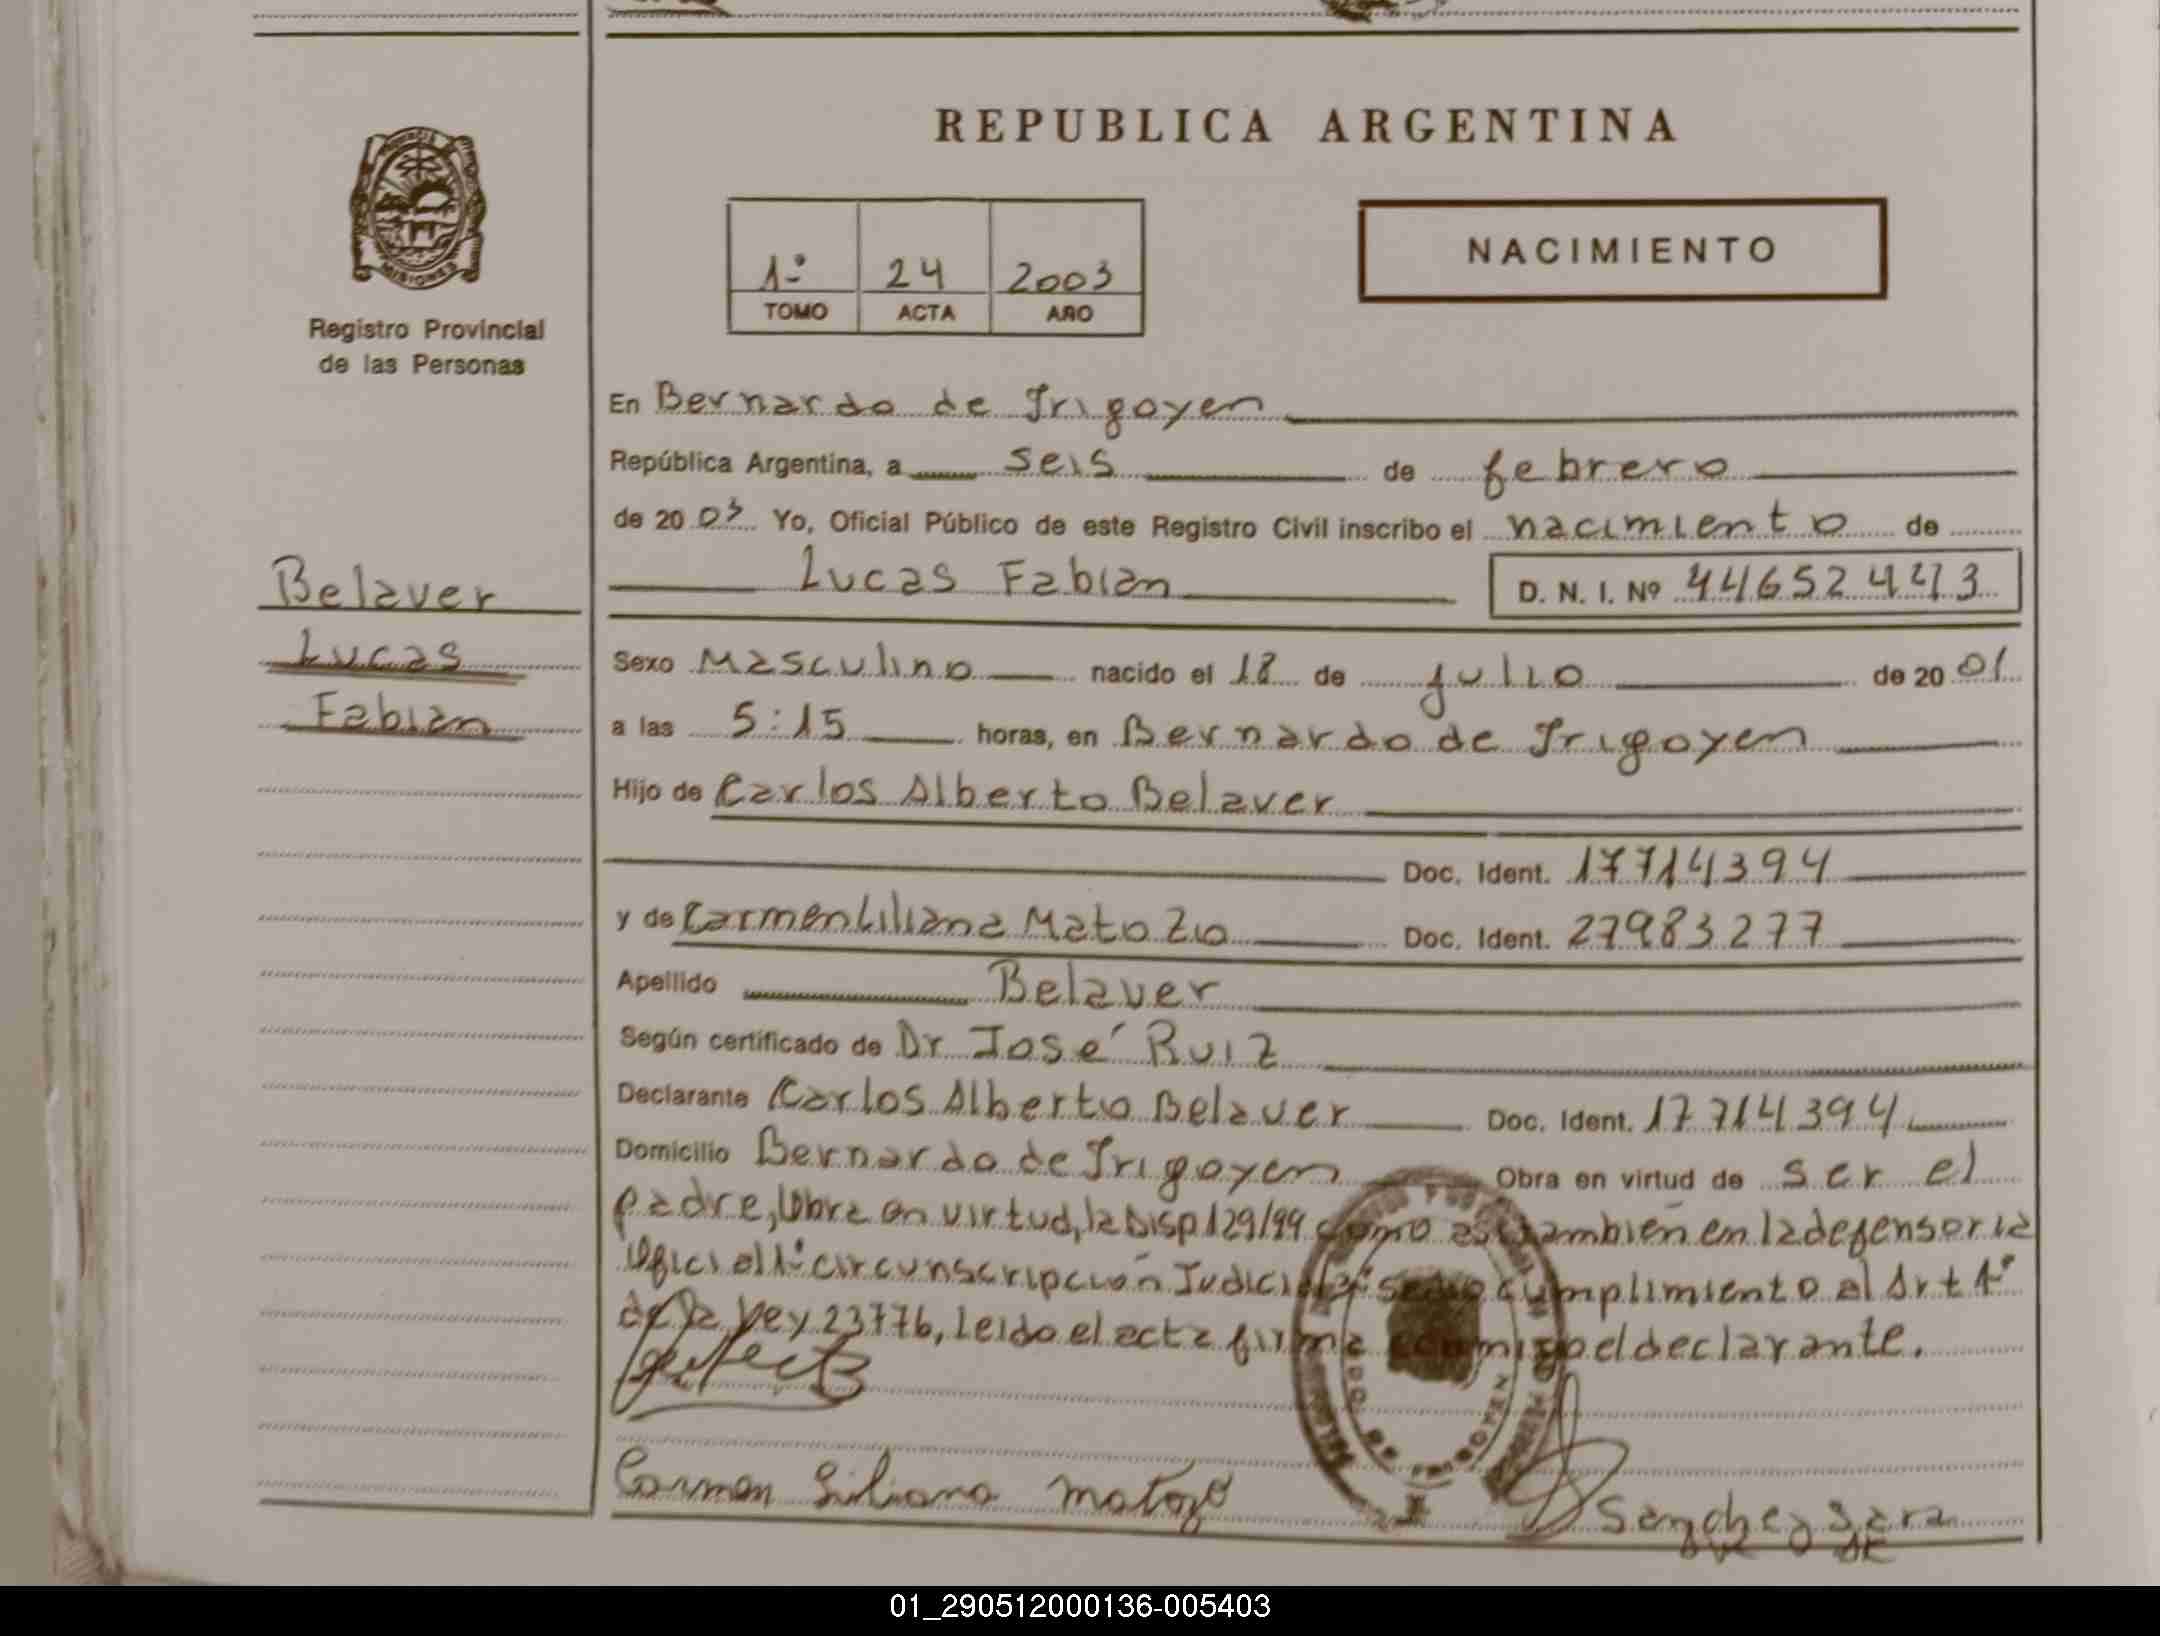 REPUBLICA ARGENTINA
MISIONES
Registro Provincial
de las Personas
1º 24 2003
TOMO ACTA AÑO
NACIMIENTO
En Bernardo de Irigoyen
República Argentina, a seis de febrero
de 2003 Yo, Oficial Público de este Registro Civil inscribo el nacimiento de
Lucas Fabian D. N. I. Nº 44652443
Belaver
Lucas
Fabian
Sexo Masculino nacido el 18 de julio de 2001
a las 5:15 horas, en Bernardo de Irigoyen
Hijo de Carlos Alberto Belaver
Doc. Ident. 17714394
y de Carmen Liliana Matozo Doc. Ident. 27983277
Apellido Belaver
Según certificado de Dr José Ruiz
Declarante Carlos Alberto Belaver Doc. Ident. 17714394
Domicilio Bernardo de Irigoyen Obra en virtud de ser el
padre, Obra en virtud, la Disp 129/99 como asi tambien en la defensoria
Oficial 1º circunscripción Judicial se dio cumplimiento al Art 1º
de la Ley 23776, Leido el acta firma conmigo el declarante.
Carmen Liliana Matozo
Sanchez Sara
01_290512000136-005403